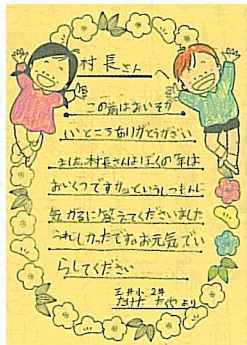 村長さんへ
この前はおいそが
しいところありがとうござい
ました。村長さんはぼくの年は
おいくつですかというしつもんに
気がるに答えてくださいました
うれしかったです。お元気でい
らしてください
玉井小 2年
たけだ たくやより